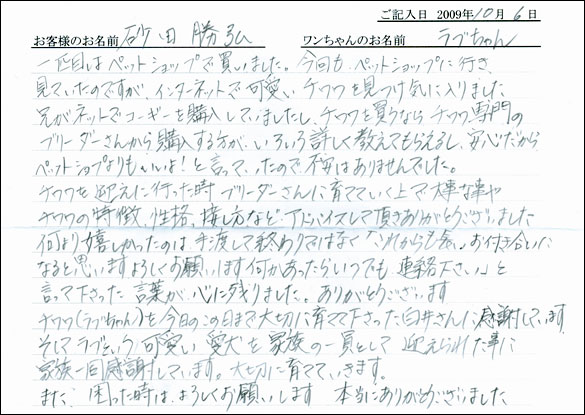 ご記入日 2009年10月6日
お客様のお名前 砂田 勝弘 ワンちゃんのお名前 ラブちゃん
一匹目はペットショップで買いました。今回も、ペットショップに行き、
見ていたのですが、インターネットで可愛いチワワを見つけ気に入りました
兄がネットでコーギーを購入していましたし、チワワを買うならチワワ専門の
ブリーダーさんから購入する方が、いろいろ詳しく教えてもらえるし、安心だから
ペットショプよりも、いいよ!と言っていたので不安はありませんでした。
チワワを迎えに行った時ブリーダーさんに育てていく上で大事な事や
チワワの特徴、性格、接し方など、アドバイスして頂きありがとうございました
何より嬉しかったのは、手渡して終わりではなく「これからも長いお付き合いに
なると思いますよろしくお願いします何かあったらいつでも連絡下さい」と
言って下さった言葉が、心に残りました。ありがとうございます
チワワ(ラブちゃん)を今日のこの日まで大切に育てて下さった白井さんに感謝しています
そしてラブという可愛い愛犬を家族の一員として迎えられた事に
家族一同感謝しています。大切に育てていきます。
また、困った時は、よろしくお願いします 本当にありがとうございました